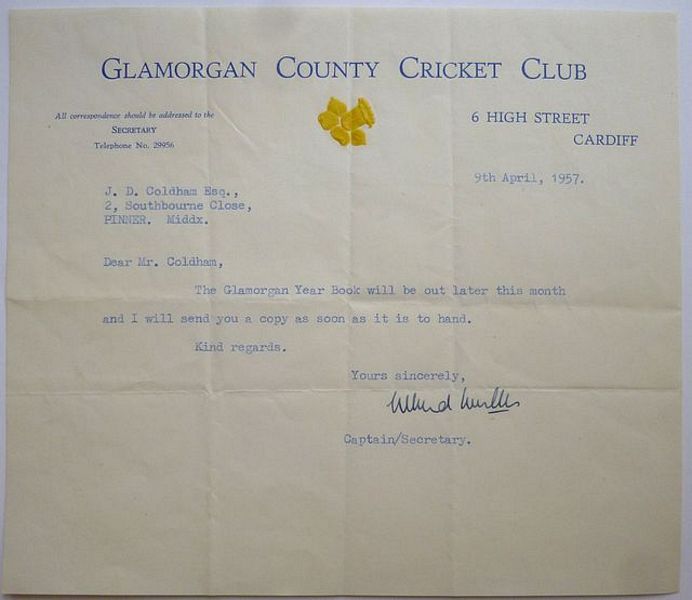 GLAMORGAN COUNTY CRICKET CLUB
All correspondence should be addressed to the
SECRETARY
Telephone No. 29956
6 HIGH STREET
CARDIFF
9th April, 1957.
J. D. Coldham Esq.,
2, Southbourne Close,
PINNER. Middx.
Dear Mr. Coldham,
The Glamorgan Year Book will be out later this month
and I will send you a copy as soon as it is to hand.
Kind regards.
Yours sincerely,
Captain/Secretary.